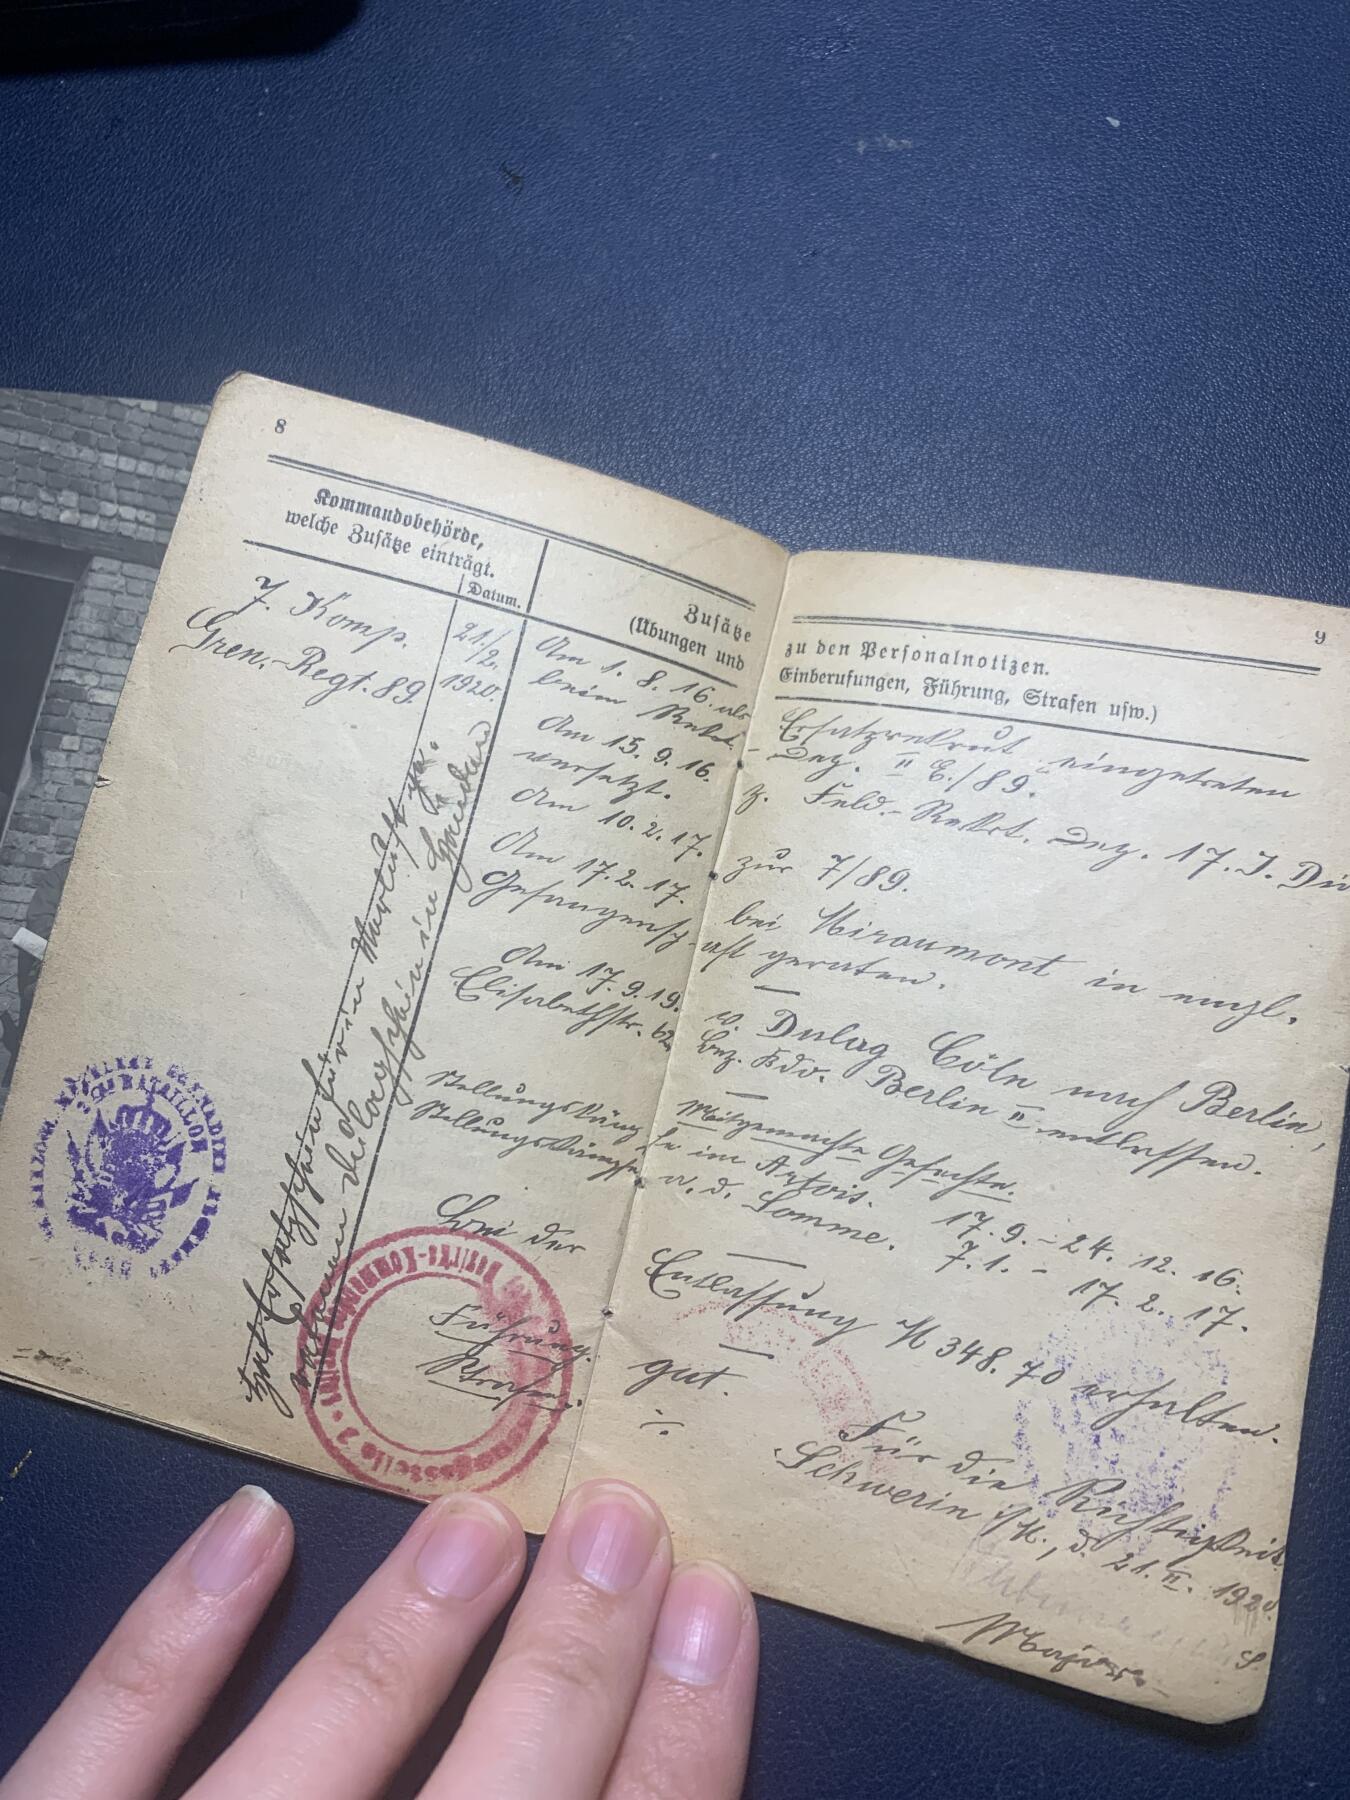 8
Kommandobehörde,
welche Zusätze einträgt.
Datum.
7. Komp.
Gren.-Regt. 89.
21./
2.
1920.
Zusätze
(Übungen und
9
zu den Personalnotizen.
Einberufungen, Führung, Strafen usw.)
Am 1. 8. 16. als Ersatzrekrut eingetreten
beim Rekrt.-Dep. II E./89.
Am 15. 9. 16. z. Feld.-Rekrt. Dep. 17. I. Div
versetzt.
Am 10. 2. 17. zur 7/89.
Am 17. 2. 17. bei Miraumont in engl.
Gefangenschaft geraten.
Am 17. 9. 19. v. Dulag Cöln nach Berlin,
Elisabethstr. 62. Bez. Kdo. Berlin II entlassen.
Mitgemachte Gefechte.
Stellungskämpfe im Artois. 17. 9. - 24. 12. 16.
Stellungskämpfe a. d. Somme. 7. 1. - 17. 2. 17.
Bei der Entlassung M 348. 70 erhalten.
Führung: gut.
Strafen: ./.
Für die Richtigkeit
Schwerin i/M., d. 21. II. 1920.
Major
hat Ersatzschein für in Verlust ge-
BATAILLON
Bezirks-Kommando